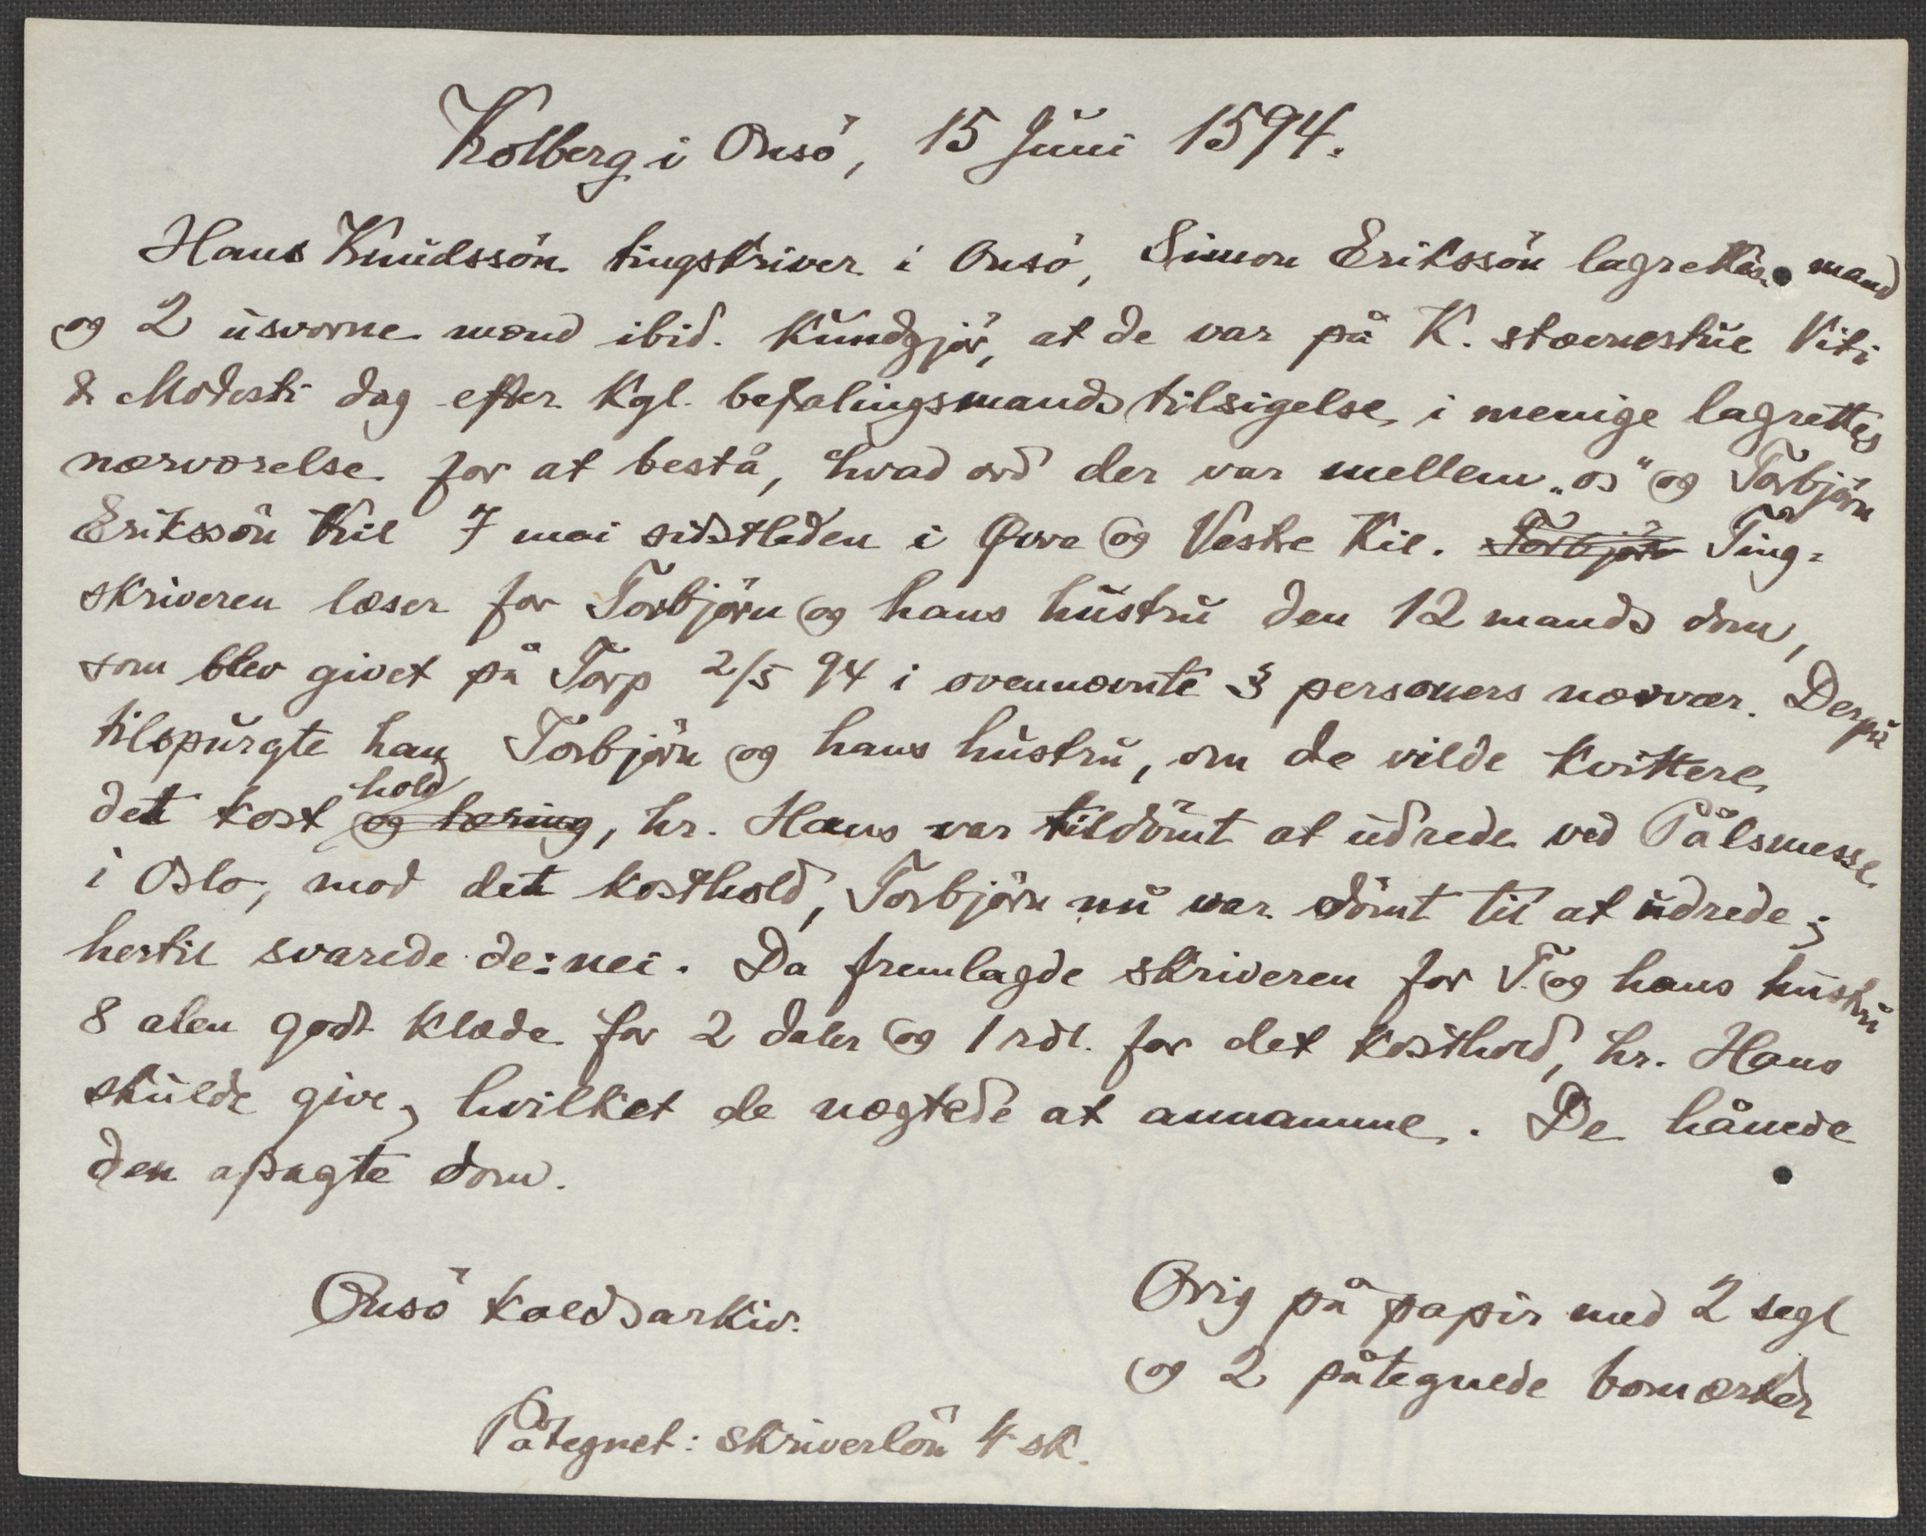 Kolberg i Onsö, 15 Juni 1594.
Hans Knudssön tingskriver i Onsö, Simon Erikssön lagrettes mand
og 2 usvorne mænd ibid. kundgjör, at de var på K. stævnestue Viti
& Modesti dag efter kgl. befalingsmands tilsigelse i menige lagrettes
nærværelse for at bestå, hvad ord der var mellem „os" og Torbjörn
Erikssön Kil 7 mai sidstleden i Övre og Vestre Kil. Torbjörn Ting-
skriveren læser for Torbjörn og hans hustru den 12 mands dom,
som blev givet på Torp 2/5 94 i ovennævnte § personers nærvær. Derpå
tilspurgte han Torbjörn og hans hustru, om de vilde kvittere
hold
det kost og tæring, hr. Hans var tildömt at udrede ved Pålsmesse
i Oslo, mod det kosthold, Torbjörn nu var dömt til at udrede;
hertil svarede de: nei. Da fremlagde skriveren for T. og hans hustru
8 alen godt klæde for 2 daler og 1 rdl. for det kosthold, hr. Hans
skulde give, hvilket de nægtede at annamme. De hånede
den afsagte dom.
Onsö kaldsarkiv.
Orig på papir med 2 segl
og 2 påtegnede bomærker
Påtegnet: skriverlön 4 sk.